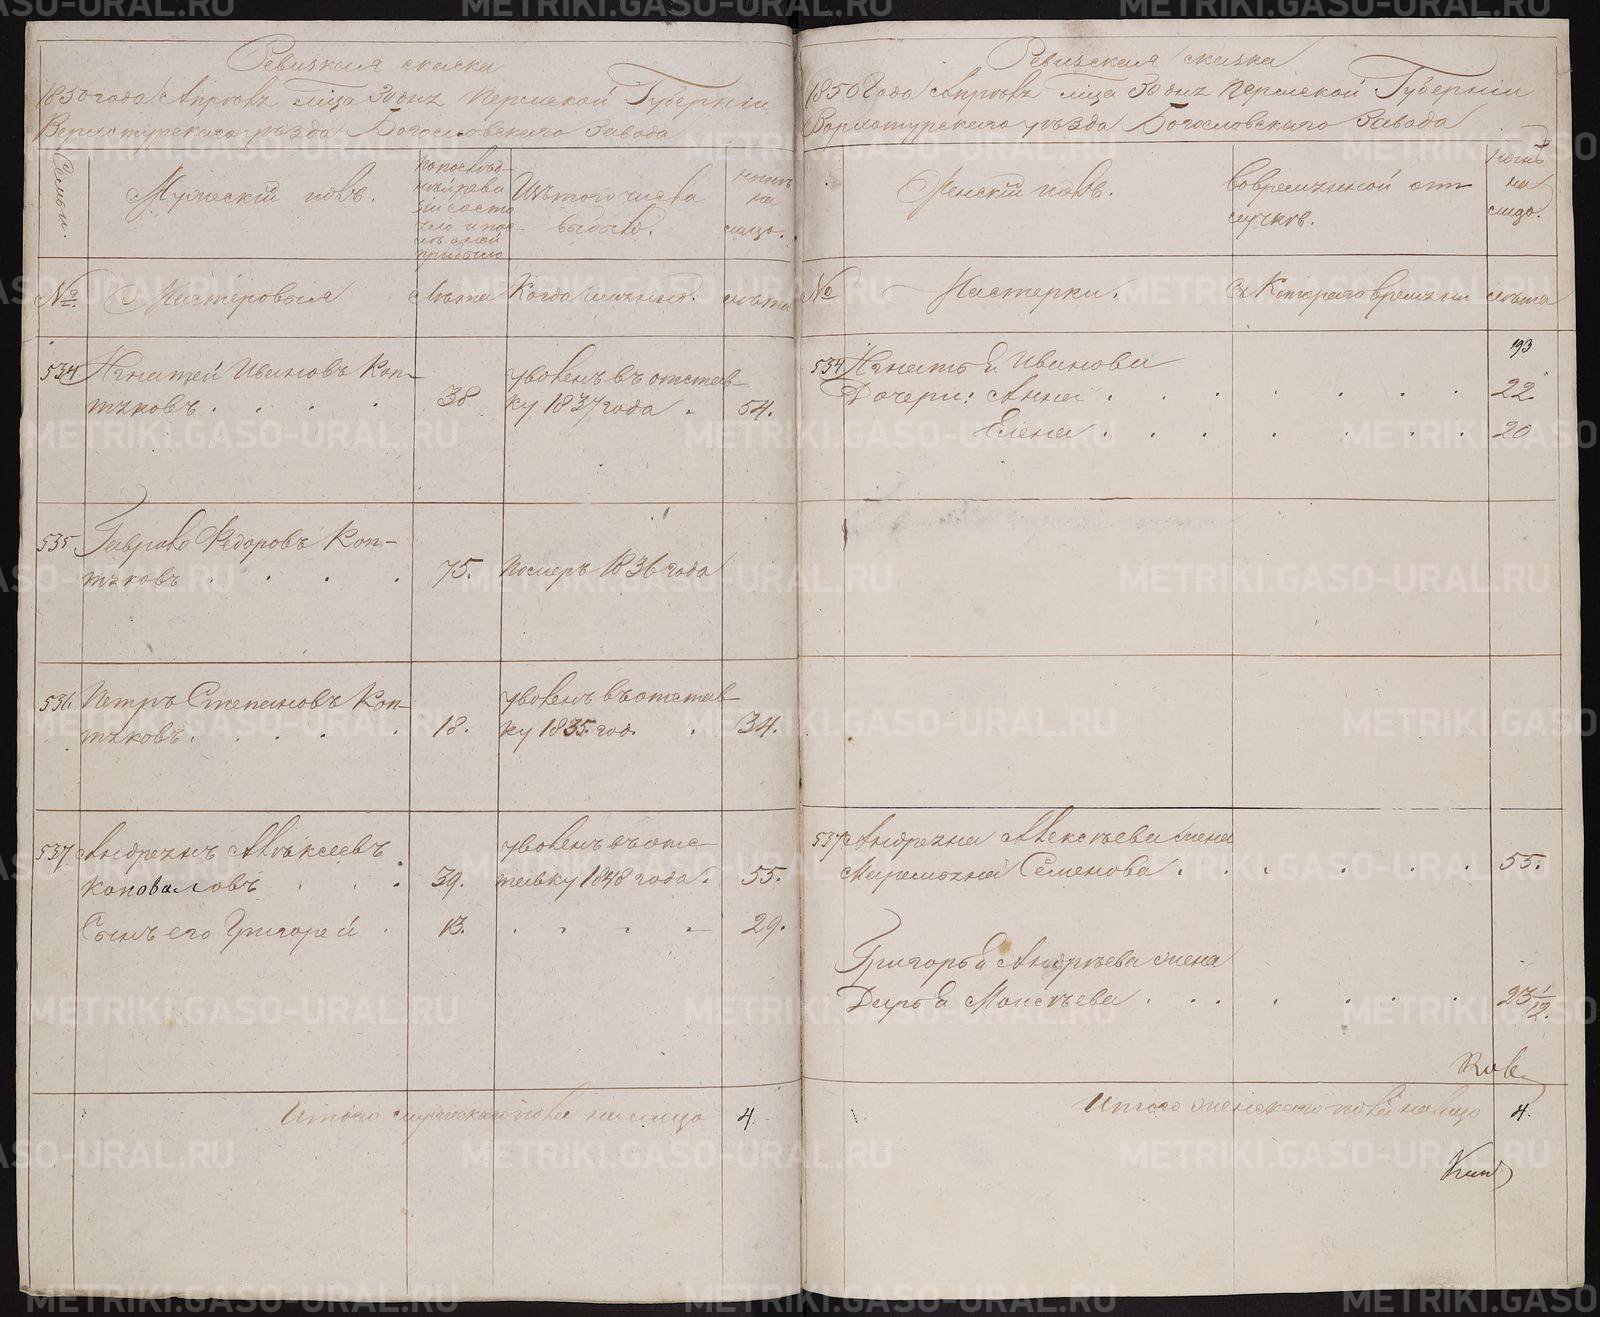 Ревизская сказка
1850 года Апреля м-ца 30 дня Пермской Губернiи
Верхотурскаго уѣзда Богословскаго Завода
Семьи.
Мужескiй полъ.
По послѣд-
ней реви-
зiи состо
яло и пос-
лѣ оной
прибыло
Изъ того числа
выбыло.
нынѣ
на
лицо.
№
Мастеровыя
Лѣта
Когда именно.
лѣта
534
Игнатей Ивановъ Коп-
тяковъ
38
уволенъ въ отстав-
ку 1837 года
54.
535
Гаврило Федоровъ Коп-
тяковъ
75.
Померъ 1836 года
536.
Петръ Степановъ Коп-
тяковъ.
18.
уволенъ въ отстав-
ку 1835 год.
34.
537
Андреянъ Алѣксеевъ
Коноваловъ
39.
уволенъ въ отс-
тавку 1848 года.
55.
Сынъ его Григорей
13.
29.
Итого мужескаго пола на лицо 4.
Ревизская сказка
1850 Года Апреля м-ца 30 дня Пермской Губернiи
Верхотурскаго уѣзда Богословскаго Завода
Женскiй полъ.
Во временной от-
лучке.
нынѣ
на
лицо.
№
Мастерки.
Съ Котораго времяни
лѣта
193
534
Игнатья Иванова
Дочери: Анна
22
Елена
20
537
Андреяна Алексѣева жена
Маремьяна Семенова
55.
Григорья Андрѣева жена
Дарья Моисѣева
23 1/12.
Итого женскаго пола на лицо 4.
METRIKI.GASO-URAL.RU